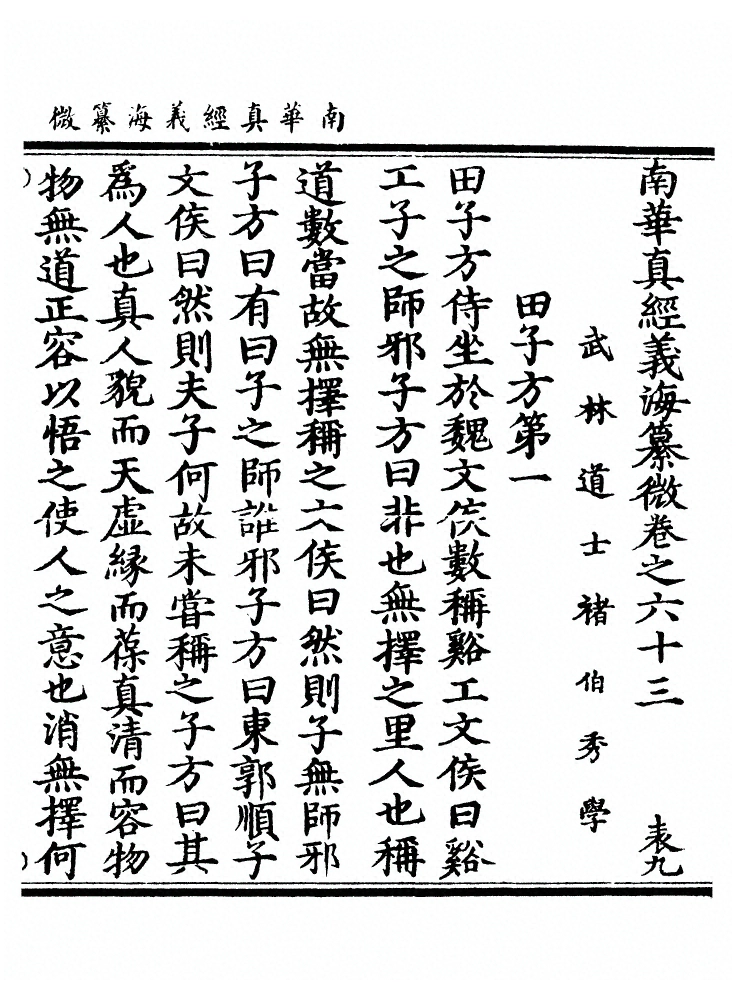 南華真經義海纂微
南華真經義海纂微卷之六十三　表九
武林道士褚伯秀學
田子方第一
田子方侍坐於魏文侯數稱谿工文侯曰谿
工子之師邪子方曰非也無擇之里人也稱
道數當故無擇稱之文侯曰然則子無師邪
子方曰有曰子之師誰邪子方曰東郭順子
文侯曰然則夫子何故未嘗稱之子方曰其
爲人也真人貌而天虛緣而葆真清而容物
物無道正容以悟之使人之意也消無擇何